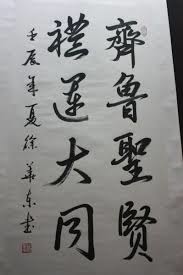 齊魯聖賢
禮運大同
壬辰年夏徐華东书